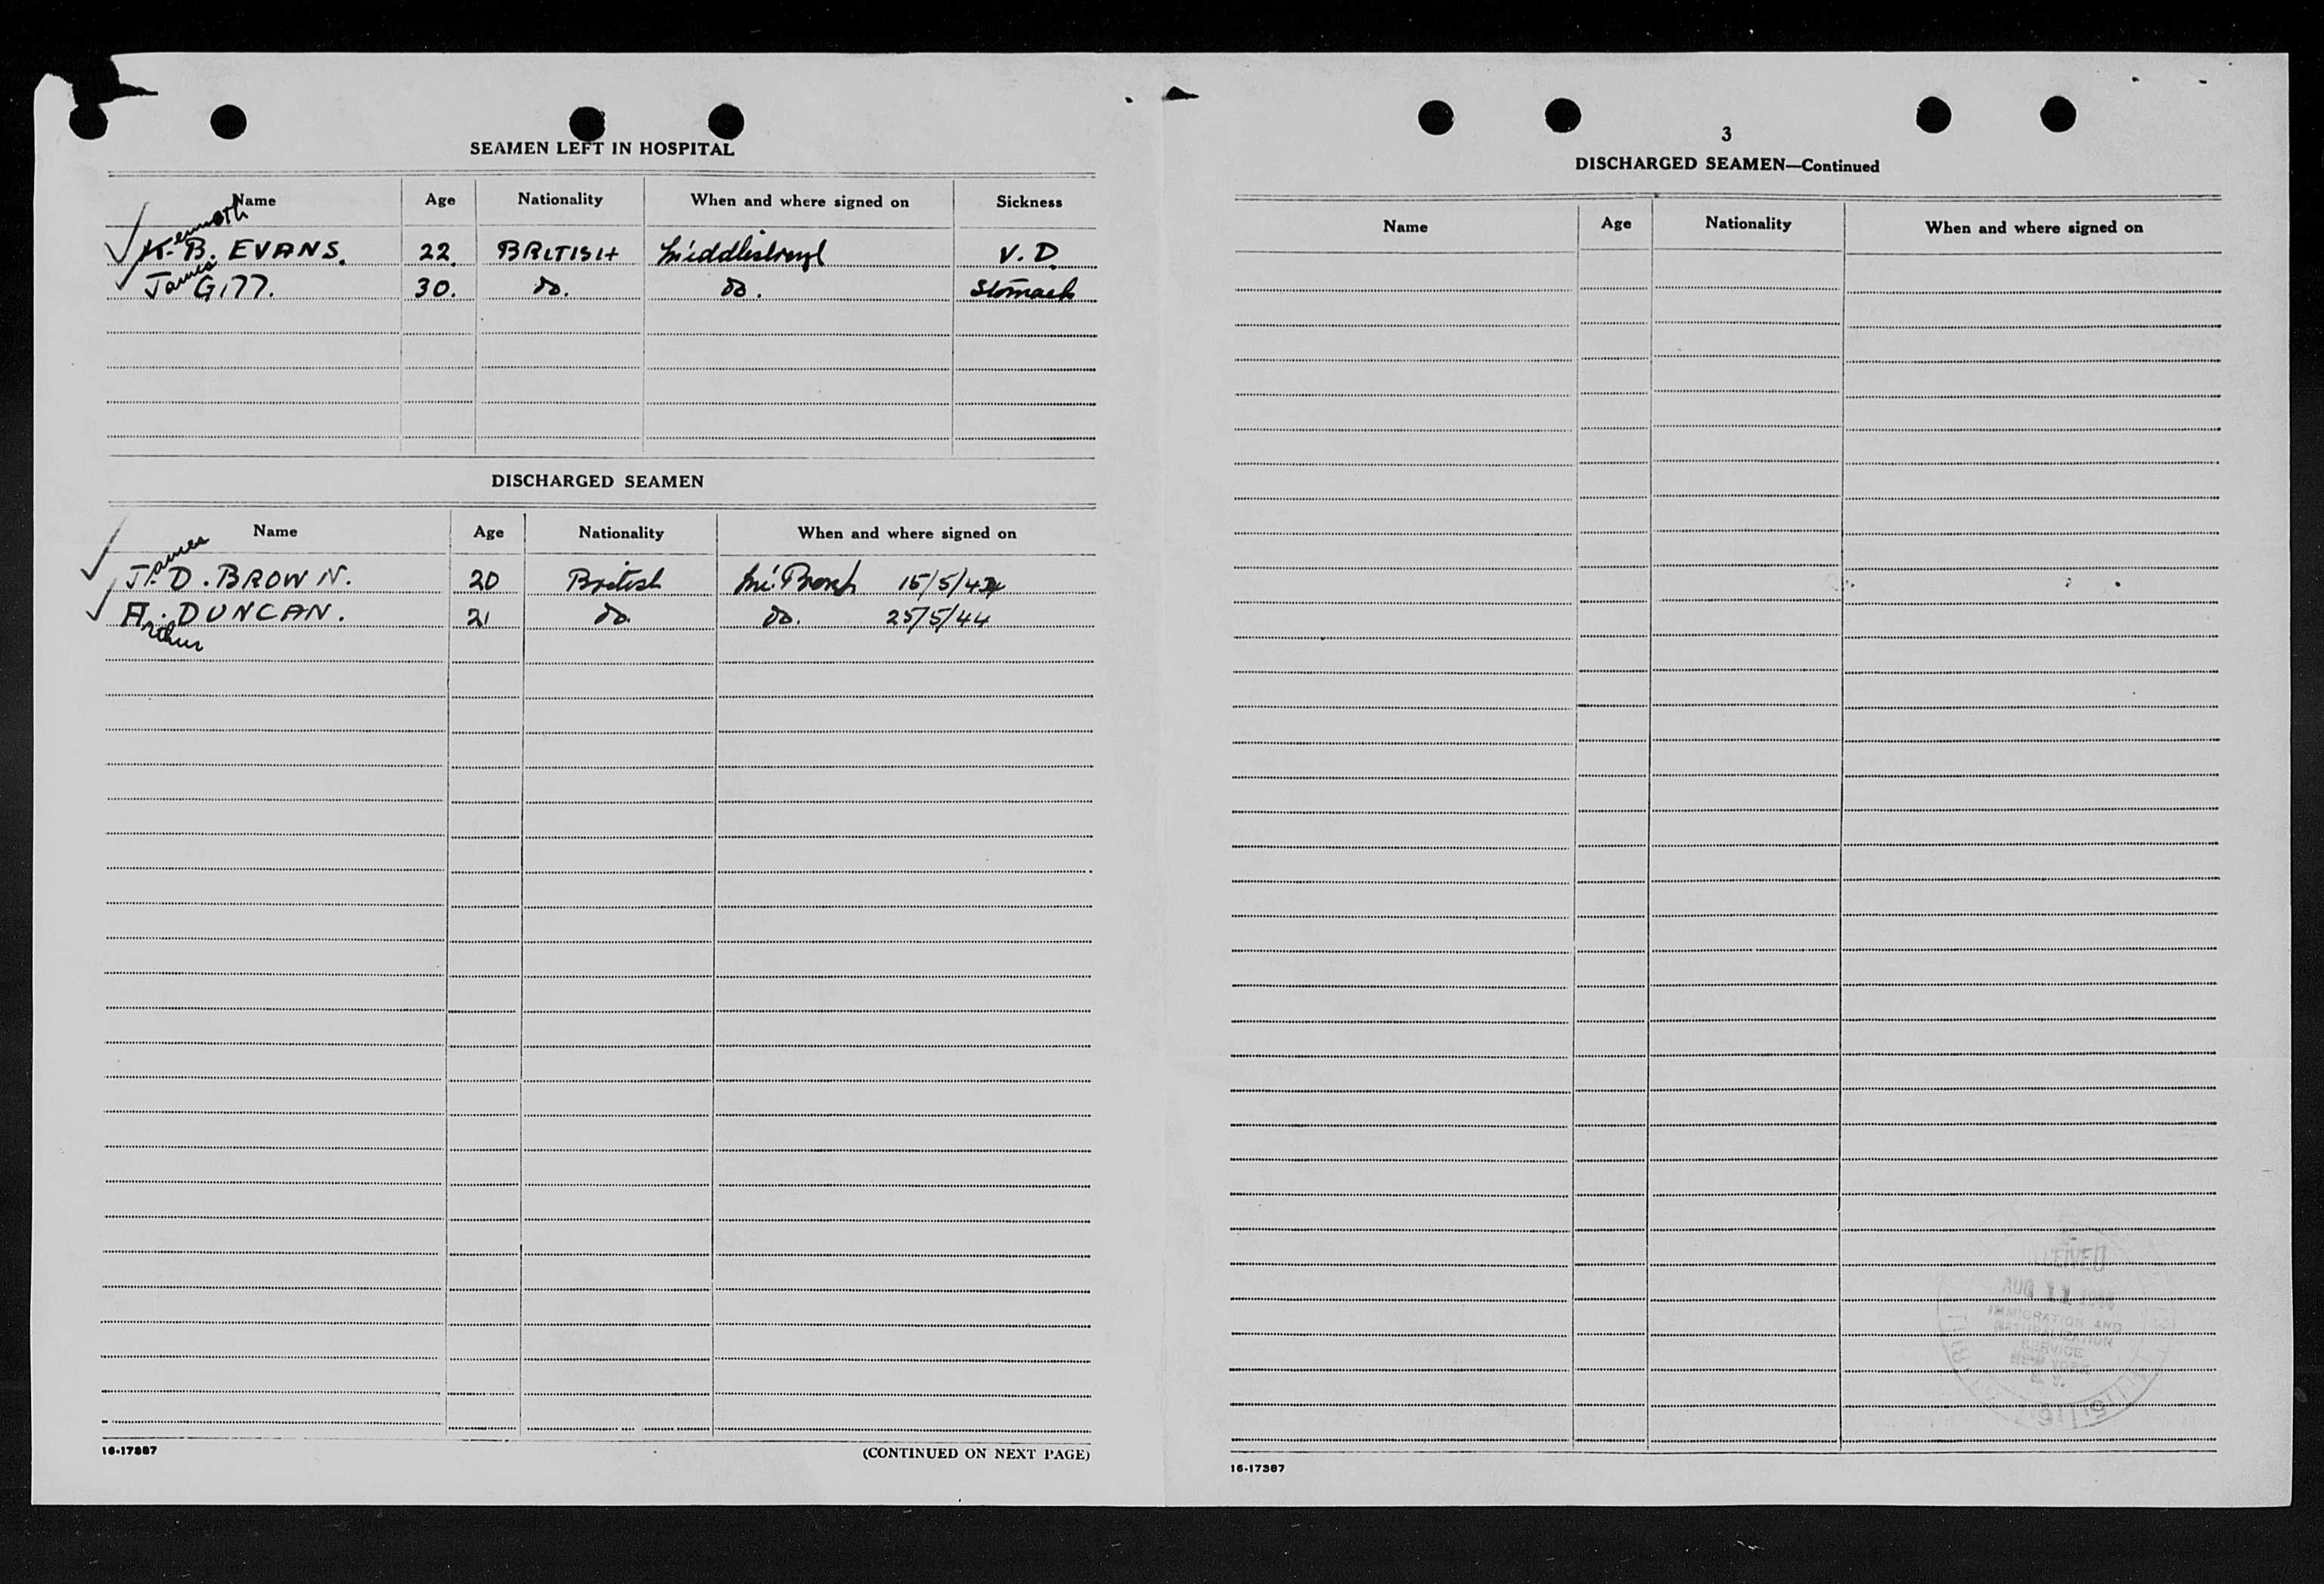 SEAMEN LEFT IN HOSPITAL
Name Age Nationality When and where signed on Sickness
Kenneth
K. B. EVANS. 22 BRITISH V. D.
James 30. do. do. Stomach
DISCHARGED SEAMEN
Name Age Nationality When and where signed on
James
J. D. BROWN. 20 British 15/5/44
A. DUNCAN. 21 do. do. 25/5/44
Arthur
16-17887 (CONTINUED ON NEXT PAGE)
3
DISCHARGED SEAMEN—Continued
Name Age Nationality When and where signed on
RECEIVED
AUG 11 1944
IMMIGRATION AND
NATURALIZATION
SERVICE
NEW YORK
N. Y.
16-17387